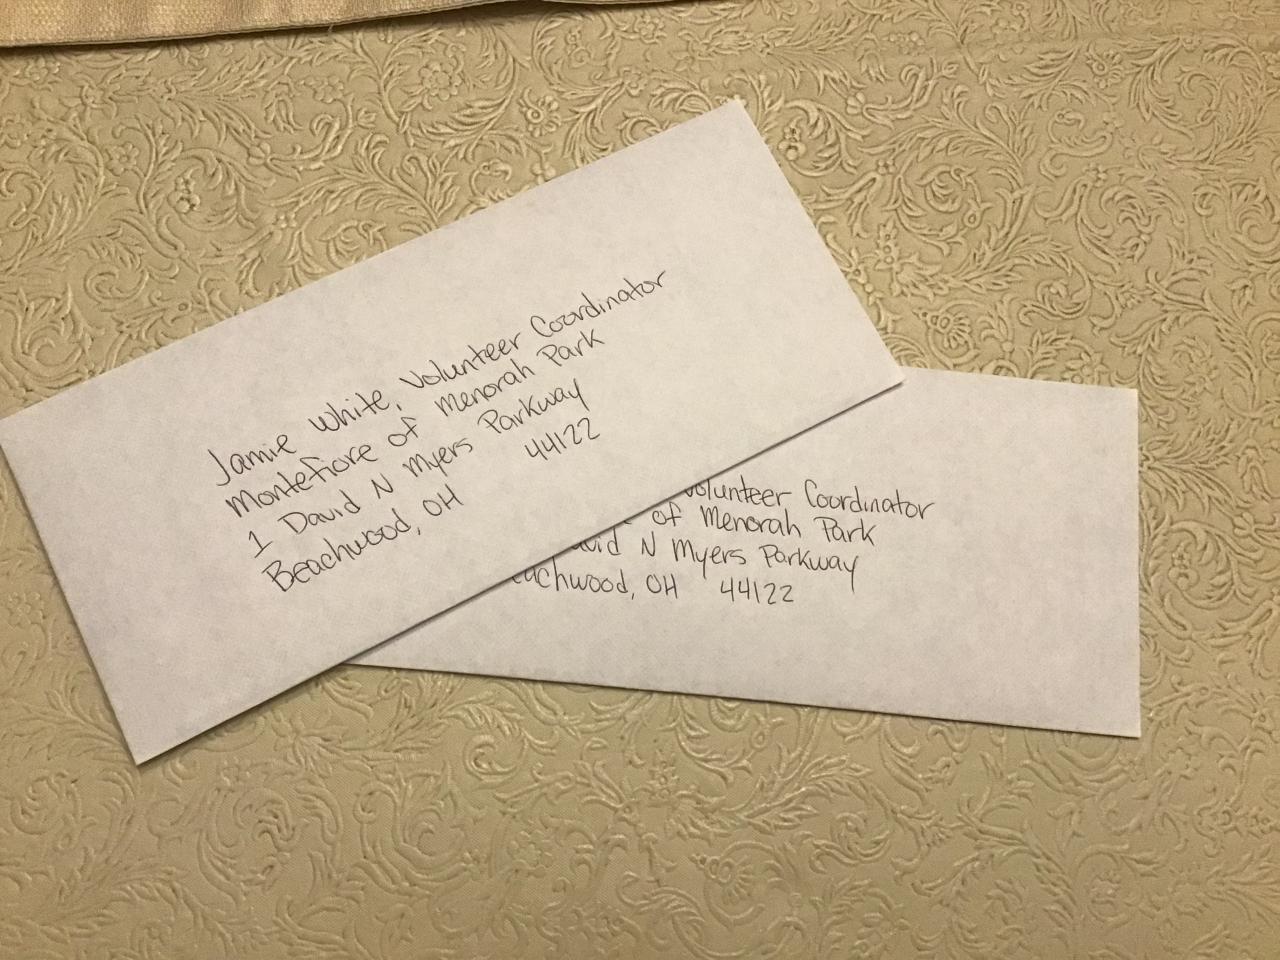 Jamie White, Volunteer Coordinator
Montefiore of Menorah Park
1 David N Myers Parkway
Beachwood, OH 44122
Volunteer Coordinator
of Menorah Park
N Myers Parkway
OH 44122